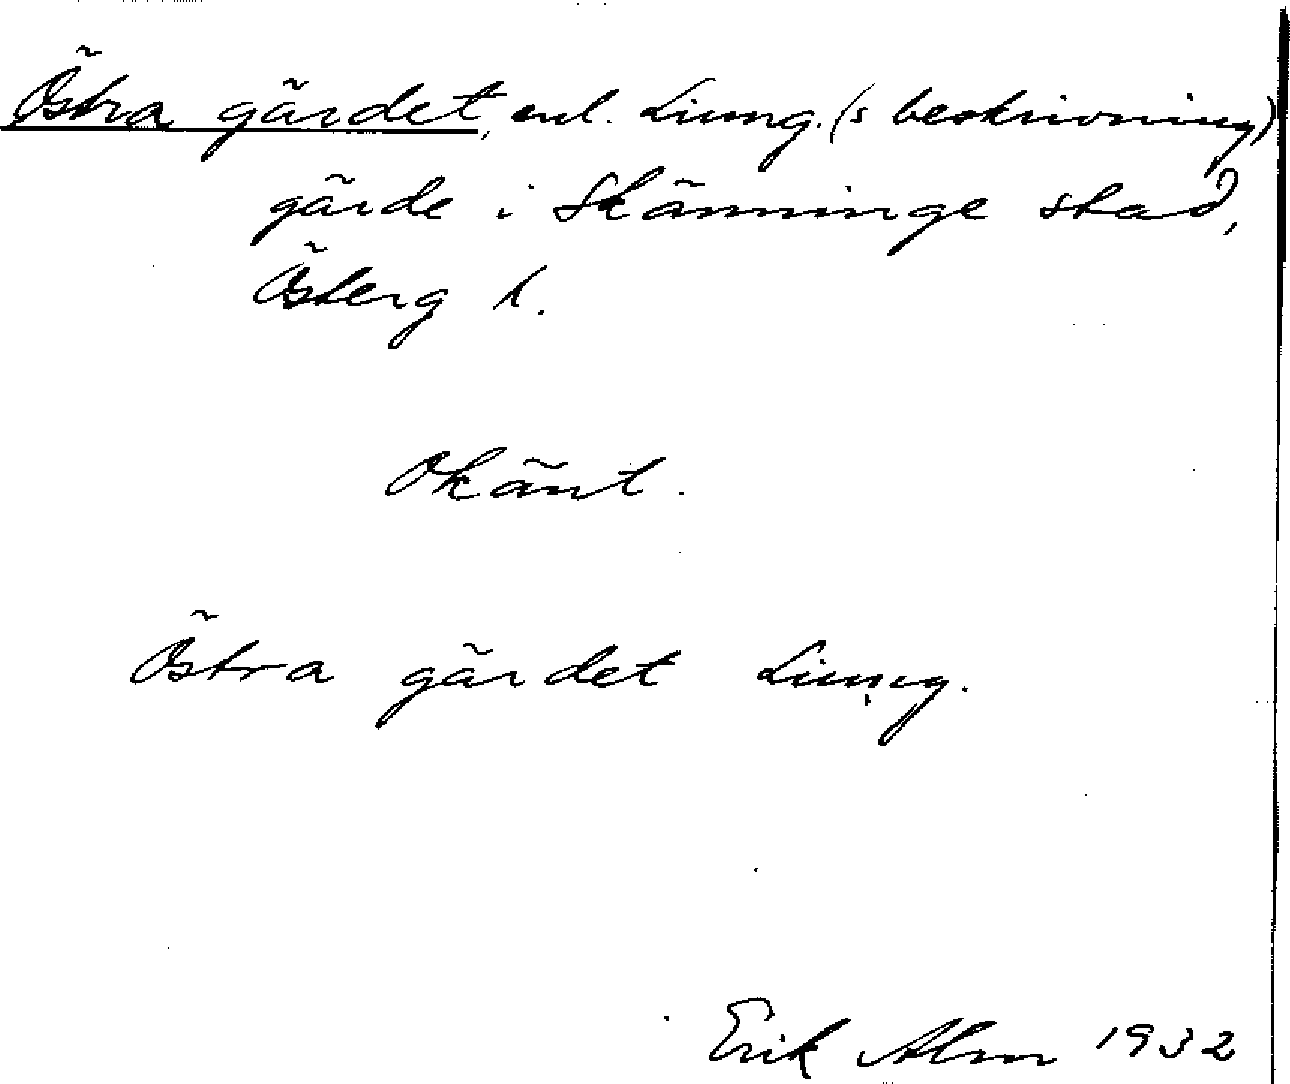 Östra gärdet, enl. Liung. (s beskrivning)
gärde i Skänninge stad,
Österg l.
Okänt.
Östra gärdet Liung.
Erik Alm 1932